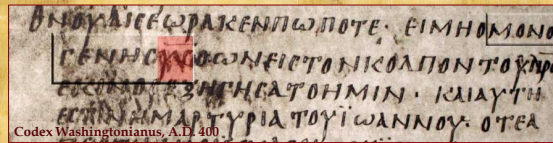 ΘΝΟΥΔΙCΕΩΡΑΚΕΝΠΩΠΟΤΕ· ΕΙΜΗΟΜΟΝΟ
ΓΕΝΗCΥCΟΩΝΕΙCΤΟΝΚΟΛΠΟΝΤΟΥΠΡC
ΕΚΕΙΝΟCΕΞΗΓΗCΑΤΟΗΜΙΝ· ΚΑΙΑΥΤΗ
ΕCΤΙΝΗΜΑΡΤΥΡΙΑΤΟΥΪΩΑΝΝΟΥ· ΟΤΕΑ
Codex Washingtonianus, A.D. 400